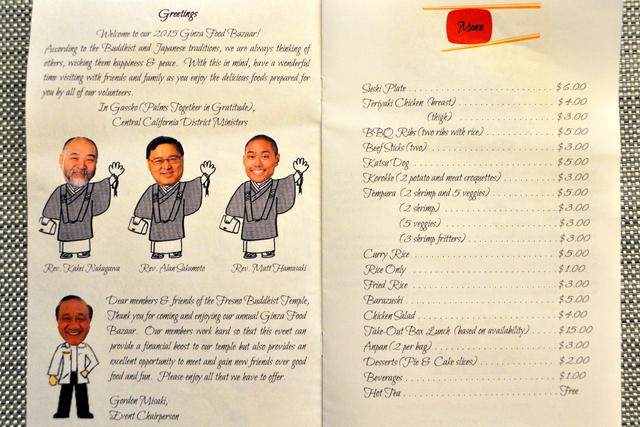 Greetings
Welcome to our 2015 Ginza Food Bazaar!
According to the Buddhist and Japanese traditions, we are always thinking of
others, wishing them happiness & peace. With this in mind, have a wonderful
time visiting with friends and family as you enjoy the delicious foods prepared for
you by all of our volunteers.
In Gassho (Palms Together in Gratitude),
Central California District Ministers
Rev. Kakei Nakagawa Rev. Alan Sakamoto Rev. Matt Hamasaki
Dear members & friends of the Fresno Buddhist Temple,
Thank you for coming and enjoying our annual Ginza Food
Bazaar. Our members work hard so that this event can
provide a financial boost to our temple but also provides an
excellent opportunity to meet and gain new friends over good
food and fun. Please enjoy all we have to offer.
Gordon Misaki,
Event Chairperson
Menu
Sushi Plate $6.00
Teriyaki Chicken (breast) $4.00
(thigh) $3.00
BBQ Ribs (two ribs with rice) $5.00
Beef Sticks (two) $3.00
Katsu Dog $5.00
Korokke (2 potato and meat croquettes) $3.00
Tempura (2 shrimp and 5 veggies) $5.00
(2 shrimp) $3.00
(5 veggies) $3.00
(3 shrimp fritters) $3.00
Curry Rice $5.00
Rice Only $1.00
Fried Rice $3.00
Barazushi $5.00
Chicken Salad $4.00
Take-Out Box Lunch (based on availability) $15.00
Anpan (2 per bag) $3.00
Desserts (Pie & Cake slices) $2.00
Beverages $1.00
Hot Tea Free